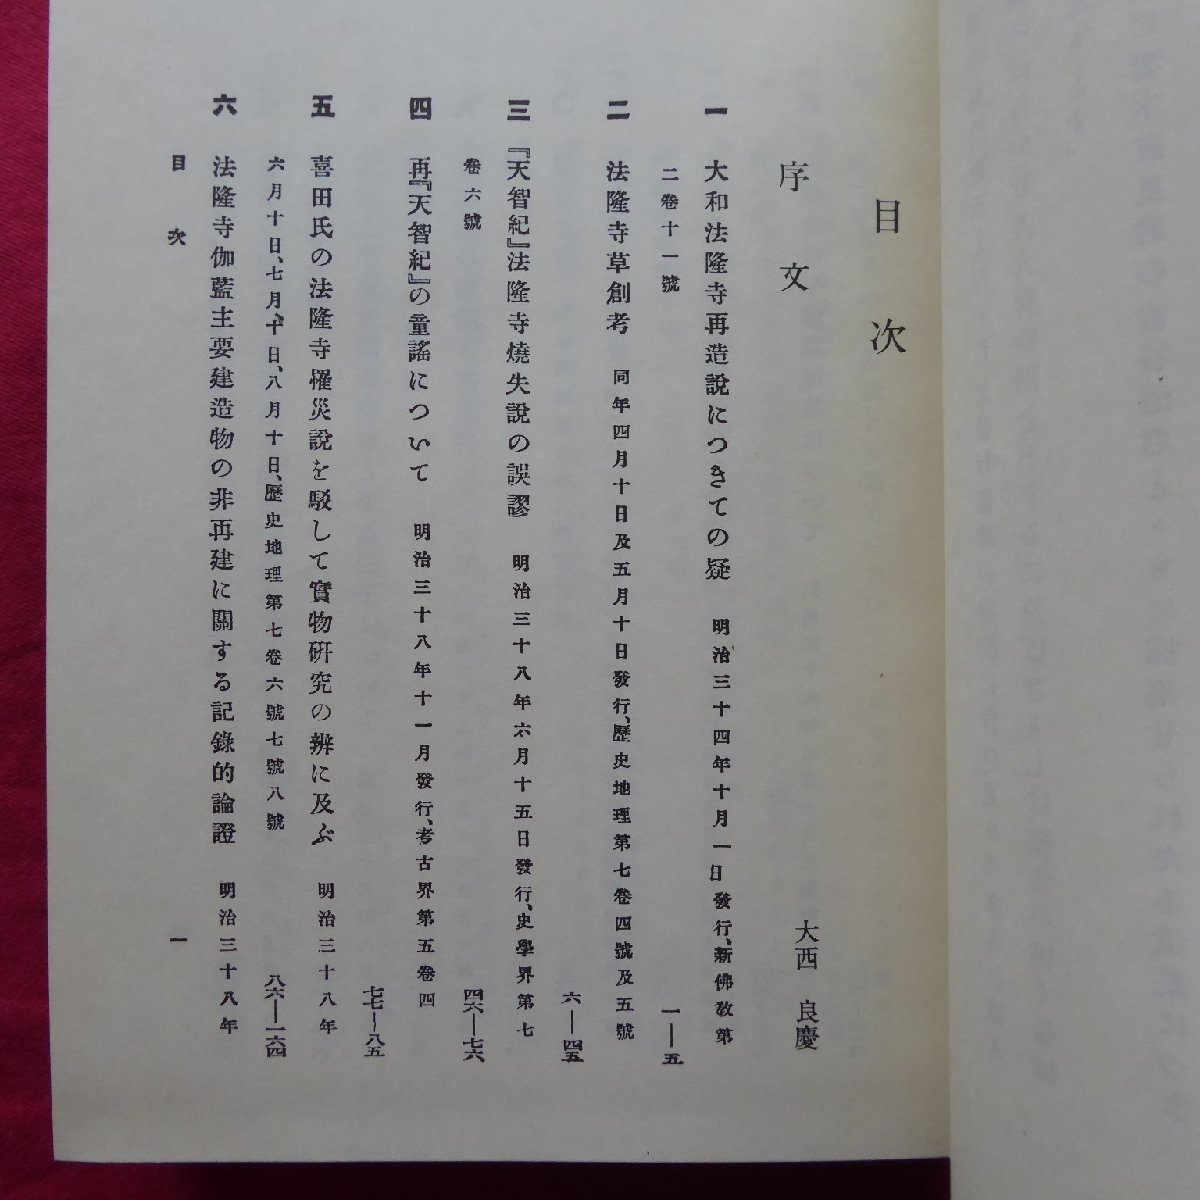 目次
序文　大西良慶
一　大和法隆寺再造說につきての疑　明治三十四年十月一日發行、新佛敎第
二卷十一號　一—五
二　法隆寺草創考　同年四月十日及五月十日發行、歷史地理第七卷四號及五號
六—四五
三　『天智紀』法隆寺燒失說の誤謬　明治三十八年六月十五日發行、史學界第七
卷六號　四六—七六
四　再『天智紀』の童謠について　明治三十八年十一月發行、考古界第五卷四
七七—八五
五　喜田氏の法隆寺罹災說を駁して實物硏究の辨に及ぶ　明治三十八年
六月十日、七月十日、八月十日、歷史地理第七卷六號七號八號　八六—一六四
六　法隆寺伽藍主要建造物の非再建に關する記錄的論證　明治三十八年
目次　一